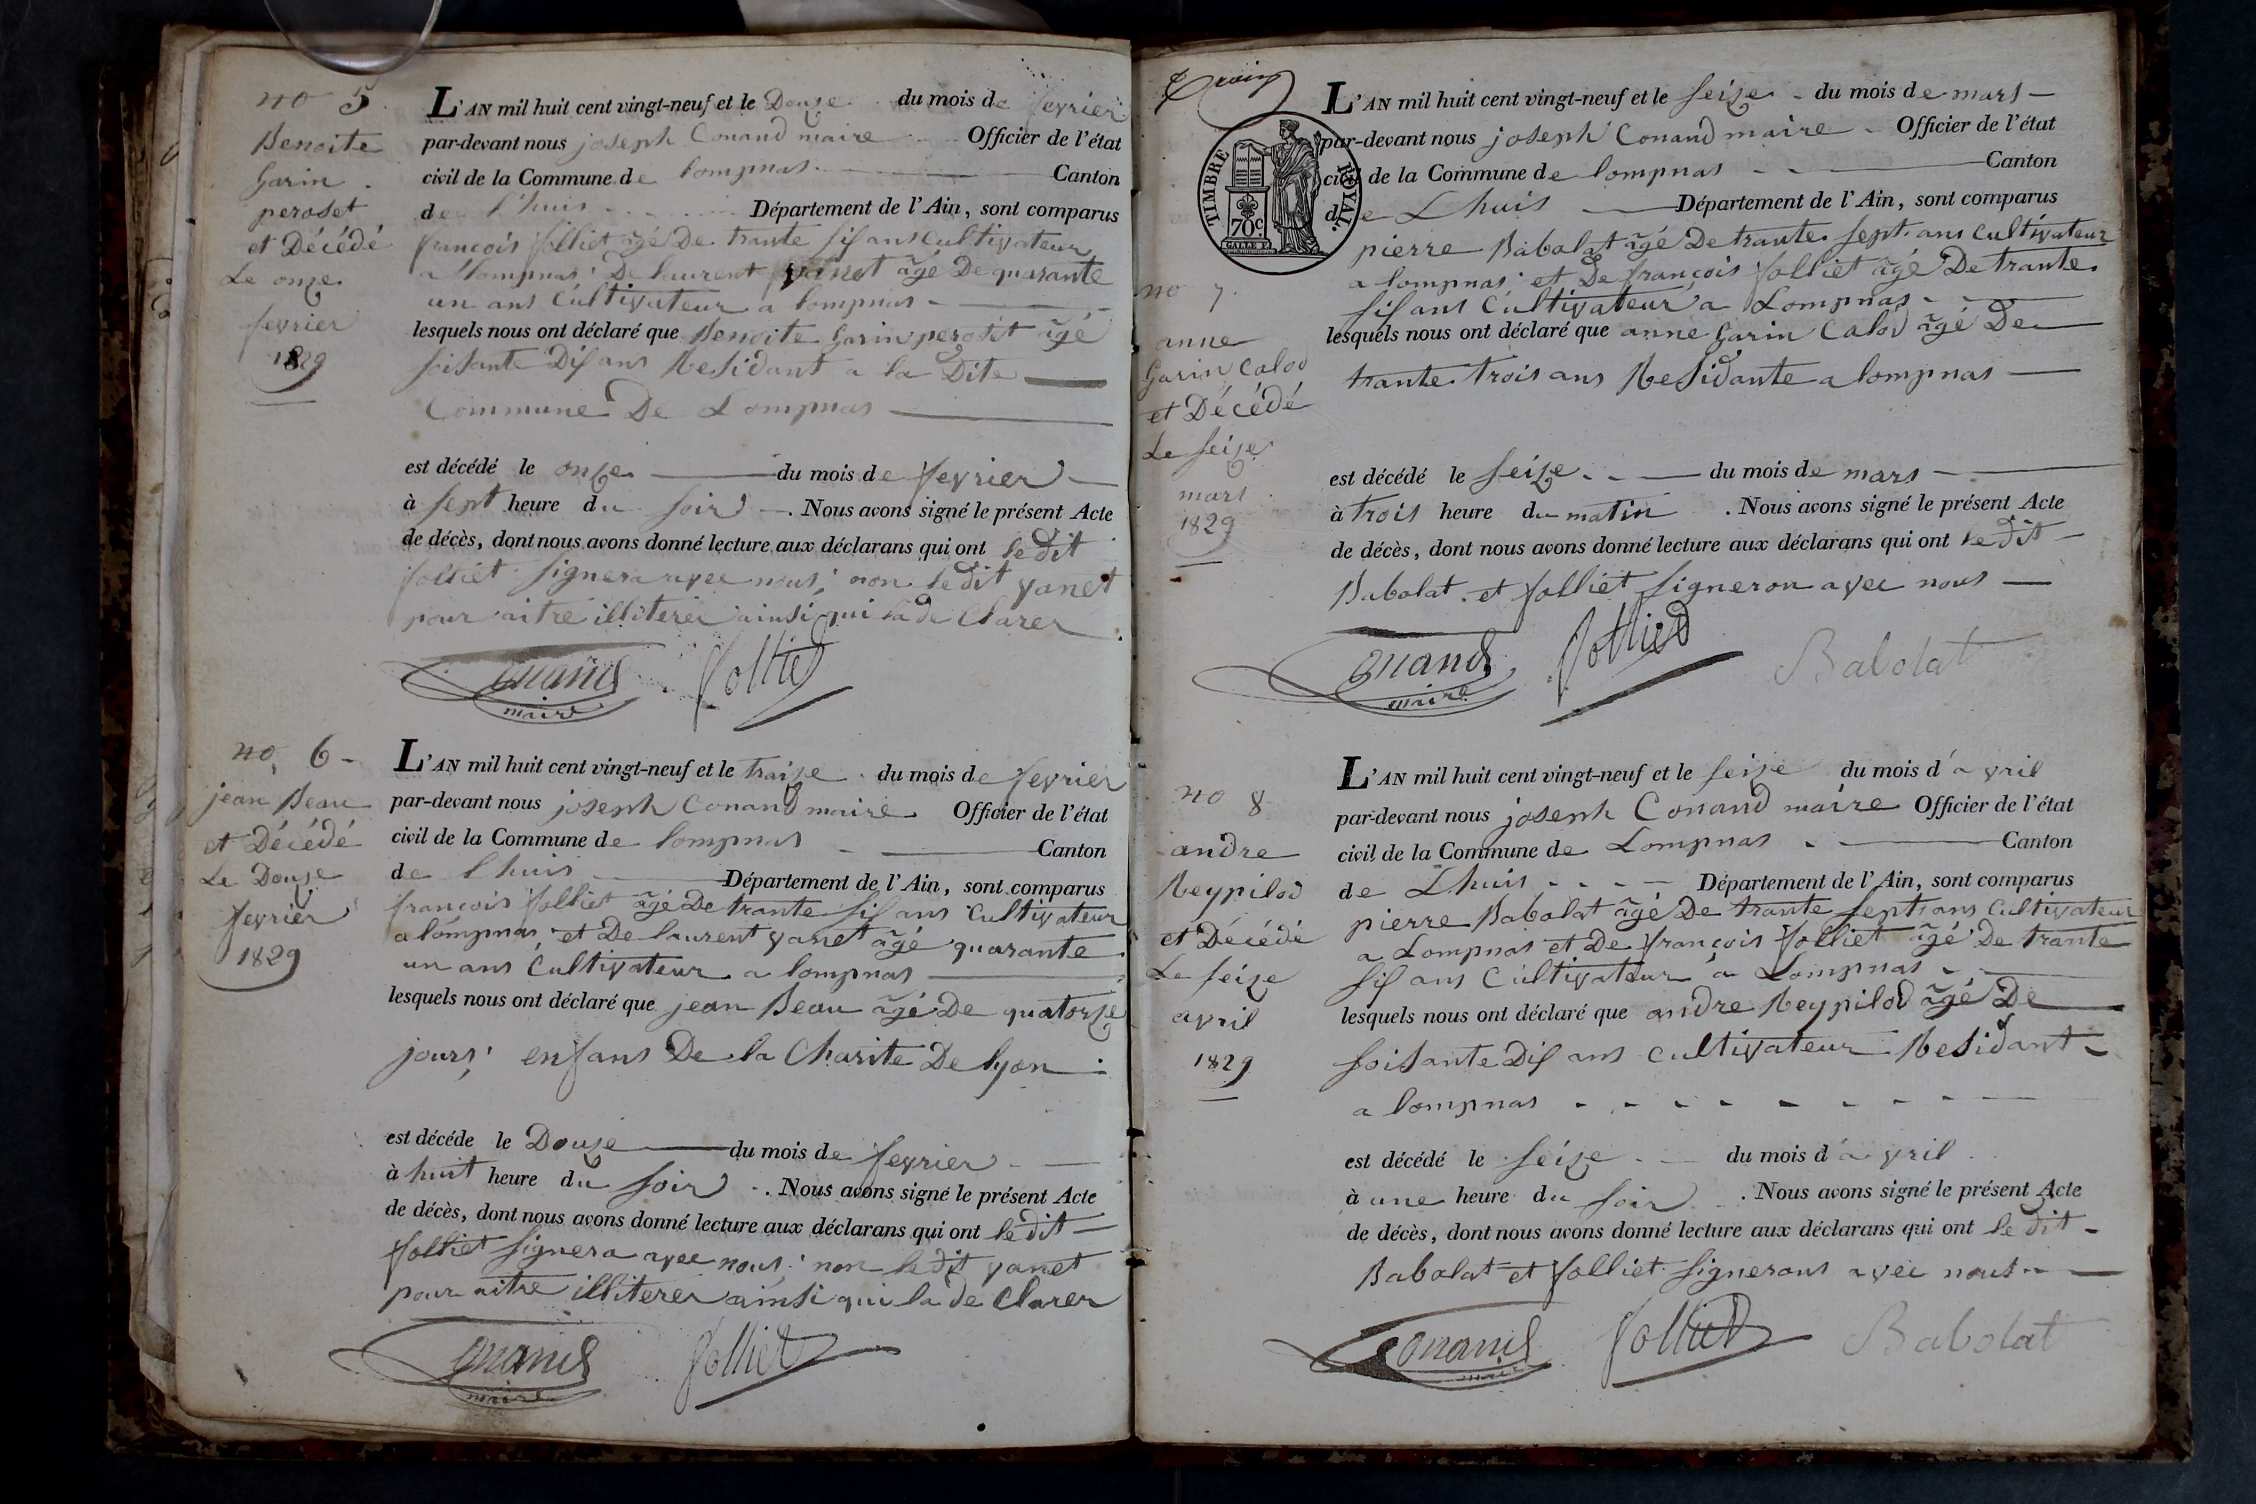 no 5
Benoite
Garin
peroset
et Décédé
Le onze
fevrier
1829
L'AN mil huit cent vingt-neuf et le Douze du mois de fevrier
par-devant nous joseph Conand maire Officier de l'état
civil de la Commune de lompnas Canton
de l'huis Département de l'Ain, sont comparus
françois folliet âgé De trante sis ans Cultivateur
a lompnas De laurent âgé De quarante
un ans Cultivateur a lompnas
lesquels nous ont déclaré que Benoite Garin perosét âgé
soisante Dis ans Residant a la Dite
Commune De Lompnas
est décédé le onze du mois de fevrier
à sept heure du soir . Nous avons signé le présent Acte
de décès, dont nous avons donné lecture aux déclarans qui ont le dit
folliet signera avec nous; non le dit vanet
pour aitre illiterer ainsi qui la de Clarer
Conand folliet
maire
no 6
jean Beau
et Décédé
Le Douze
fevrier
1829
L'AN mil huit cent vingt-neuf et le traize du mois de fevrier
par-devant nous joseph Conand maire Officier de l'état
civil de la Commune de lompnas Canton
de l'huis Département de l'Ain, sont comparus
françois folliet âgé De trante sis ans Cultivateur
a lompnas et De laurent vanet âgé quarante
un ans Cultivateur a lompnas
lesquels nous ont déclaré que jean Beau âgé De quatorze
jours; enfans De la Charite De lyon
est décéde le Douze du mois de fevrier
à huit heure du soir . Nous avons signé le présent Acte
de décès, dont nous avons donné lecture aux déclarans qui ont le dit
folliet signera avec nous; non le dit vanet
pour aitre illiterer ainsi qui la de Clarer
Conand folliet
maire
TIMBRE ROYAL
70c
no 7
anne
Garin Calod
et Décédé
Le seize
mars
1829
L'AN mil huit cent vingt-neuf et le seize du mois de mars
par-devant nous joseph Conand maire Officier de l'état
civil de la Commune de lompnas Canton
de Lhuis Département de l'Ain, sont comparus
pierre Babolat âgé De trante sept ans cultivateur
a lompnas et De françois folliet âgé De trante
sis ans Cultivateur a Lompnas
lesquels nous ont déclaré que anne Garin Calod âgé De
trante trois ans Residante a lompnas
est décédé le seize du mois de mars
à trois heure du matin . Nous avons signé le présent Acte
de décès, dont nous avons donné lecture aux déclarans qui ont le dit
Babolat et folliet signeron avec nous
Conand folliet Babolat
maire
no 8
andre
Reypilod
et Décédé
Le seize
avril
1829
L'AN mil huit cent vingt-neuf et le seize du mois d'avril
par-devant nous joseph Conand maire Officier de l'état
civil de la Commune de Lompnas Canton
de Lhuis Département de l'Ain, sont comparus
pierre Babolat âgé De trante sept ans Cultivateur
a Lompnas et De françois folliet âgé De trante
sis ans Cultivateur a Lompnas
lesquels nous ont déclaré que andre Reypilod âgé De
soisante Dis ans cultivateur Residant
a lompnas
est décédé le seize du mois d'avril
à une heure du soir . Nous avons signé le présent Acte
de décès, dont nous avons donné lecture aux déclarans qui ont le dit
Babolat et folliet signerons avec nous
Conand folliet Babolat
maire